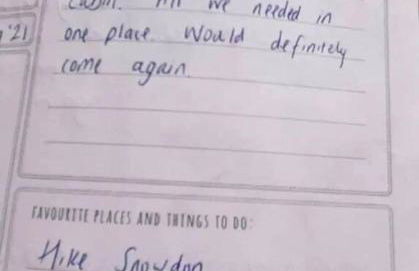 cabin. All we needed in
'21 one place. Would definitely
come again.
FAVOURITE PLACES AND THINGS TO DO:
Hike Snowdon